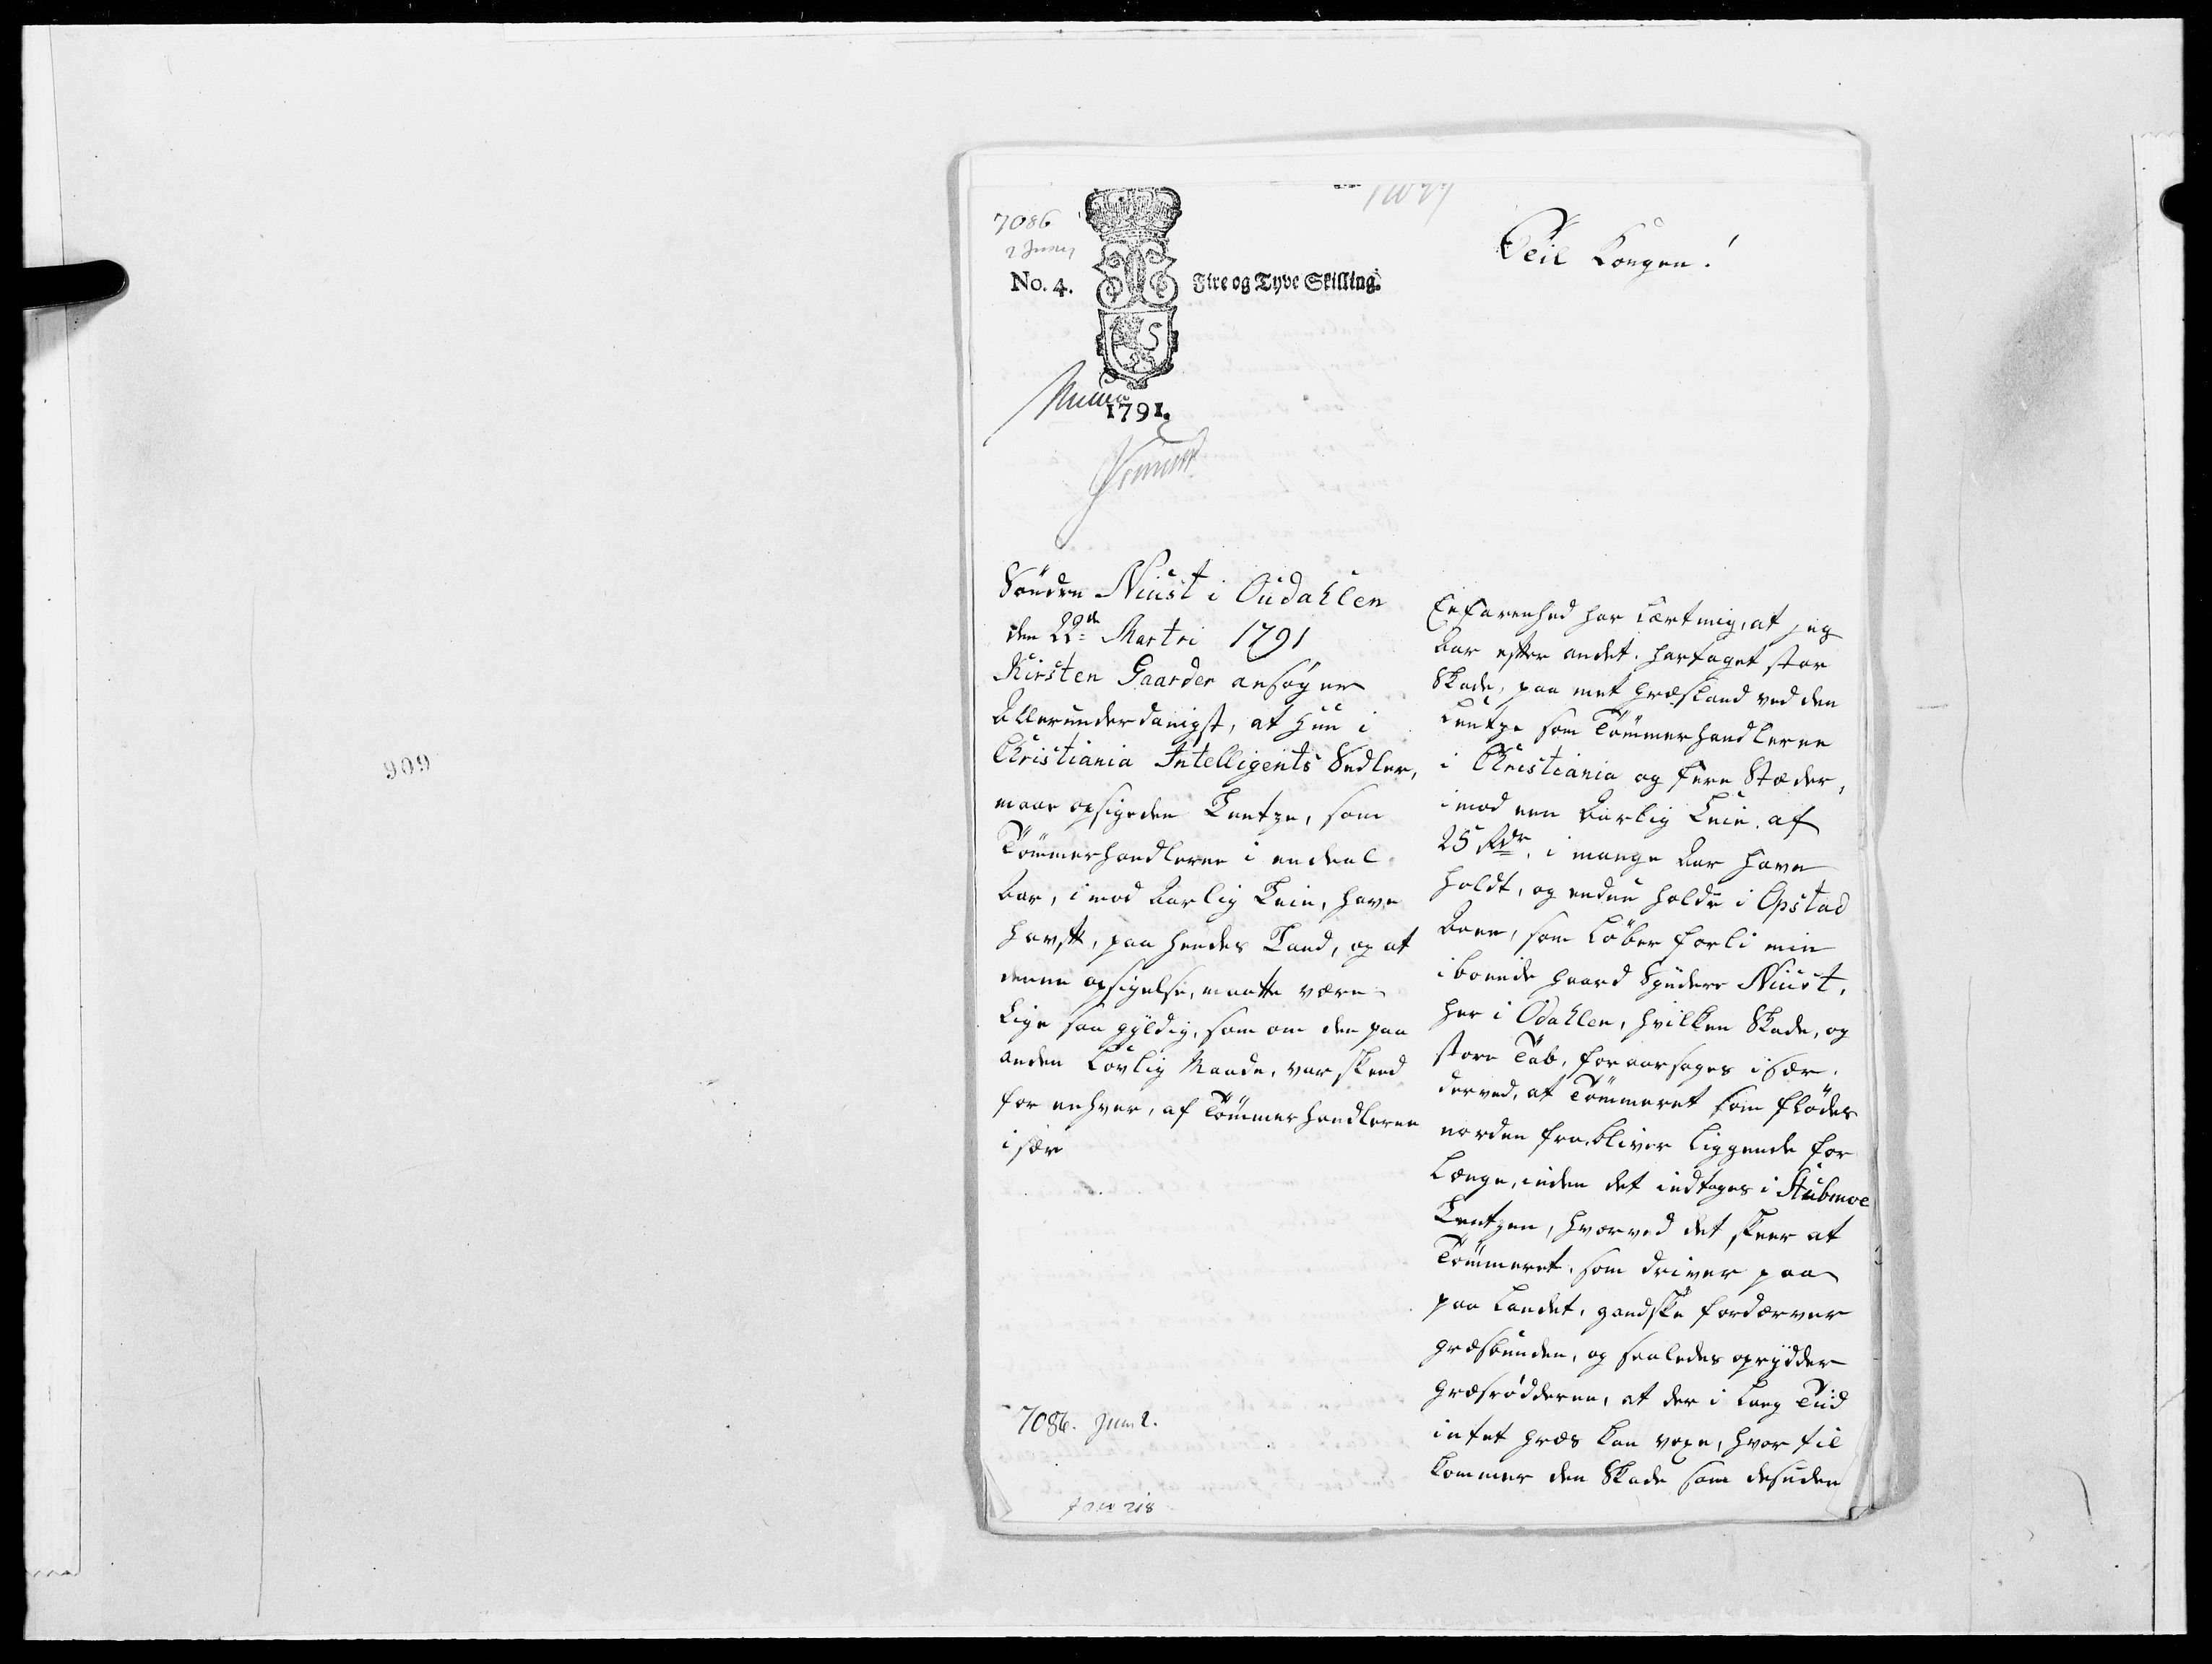 7086
2 Juny
No. 4.
Fire og Tyve Skilling.
1791.
Teil Kongen!
Sönden Niust i Oudahlen
den 22de Martri 1791
Kirsten Gaarder ansøger
Allerunderdanigst, at hun i
Christiania Intelligents Sedler,
maae opsige den Lentze, som
Tömmerhandlerne i en deel
Aar, imod Aarlig Leie, have
havft, paa hendes Land, og at
denne opsigelse, maatte være
Lige saa gyldig, som om den paa
anden Lovlig Maade, var skeed
for enhver, af Tömmerhandlerne
især
7086. Juni 2.
909
Erfarenhed har Lært mig, at jeg
Aar efter andet. har taget stor
Skade, paa met Græsland ved den
Lentze som Tömmerhandlerne
i Christiania og fere Stæder,
imod en Aarlig Leie. af
25 Rdr. i mange Aar have
holdt, og endnu holder i Opstad
Aaen, som Löber forbi min
iboende Gaard Syndere Niust.
her i Odahlen, hvilken Skade, og
store Tab, foraarsages især.
derved, at Tömmeret som flödes
norden fra, bliver Liggende for
Længe, inden det indtages i Stubmoe
Lentzen, hvorved det skeer at
Tömmeret. som driver paa
paa Landet, gandske fordærver
græsbunden, og saaledes oprydder
græsrödderne, at der i Lang Tiid
intet græs kan voxe, hvor til
kommer den Skade som desuden